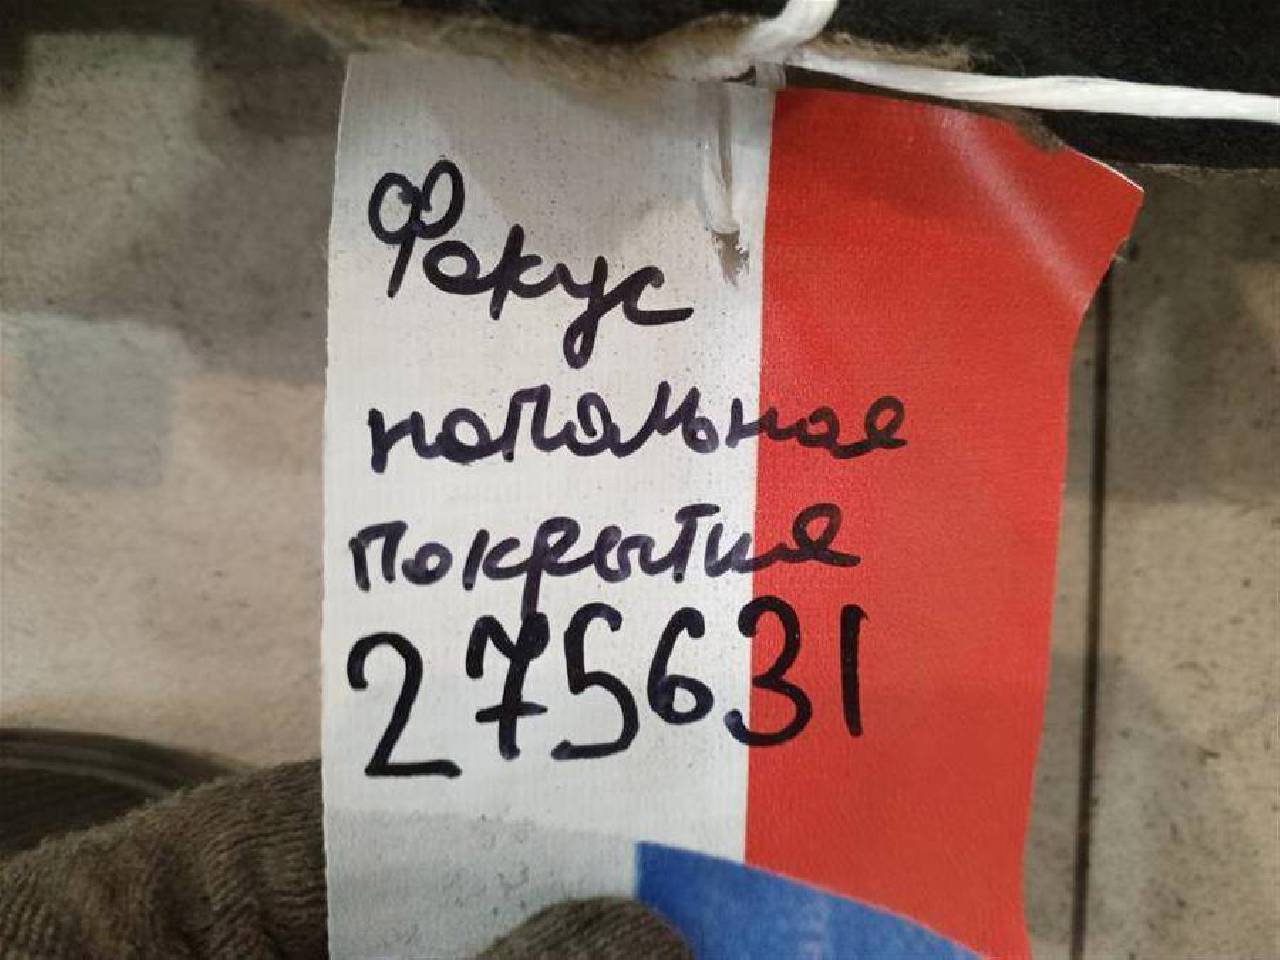 Фокус
напольное
покрытие
275631